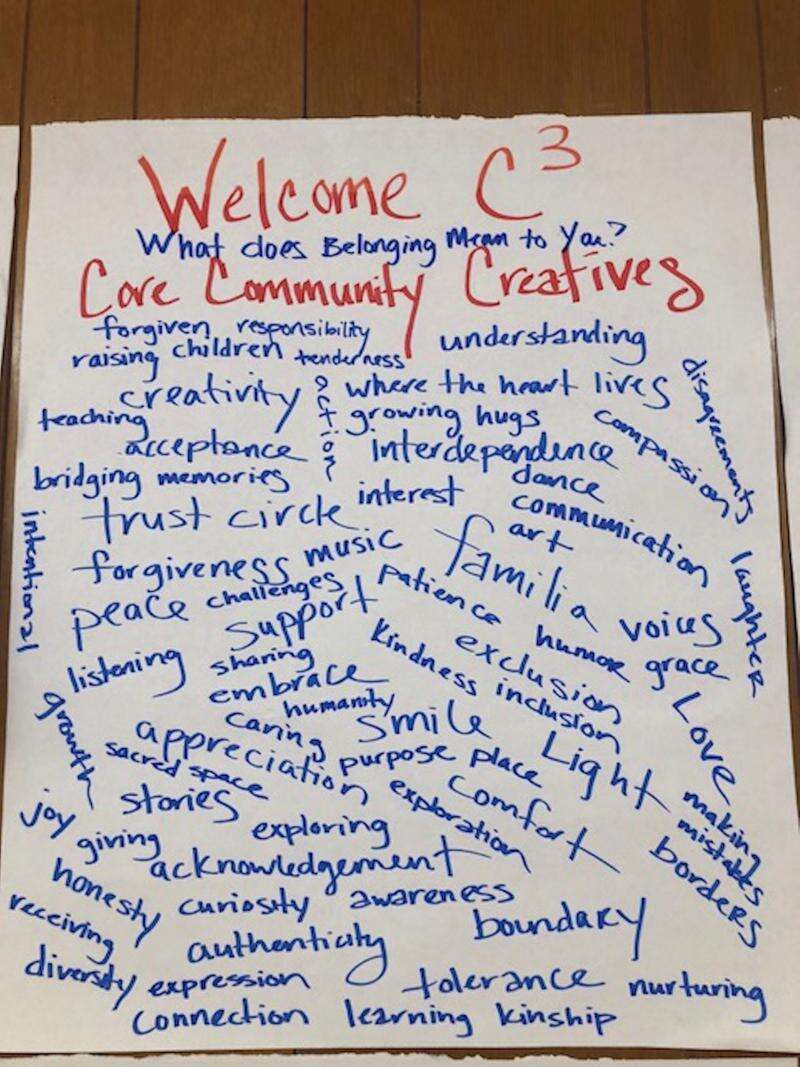 Welcome C³
What does Belonging Mean to You?
Core Community Creatives
forgiven responsibility
raising children tenderness
understanding
creativity
action
where the heart lives
disagreements
teaching
growing hugs
compassion
acceptance
Interdependence
bridging memories
interest
dance
communication
trust circle
art
intentional
forgiveness
music
familia
laughter
peace
challenges
patience
voices
support
humor
grace
listening
sharing
kindness
exclusion
inclusion
embrace
humanity
growth
caring
smile
Love
appreciation
purpose place
Light
sacred space
stories
exploration
comfort
making mistakes
joy
giving
exploring
borders
acknowledgement
honesty
curiosity
awareness
receiving
boundary
authenticity
diversity
expression
tolerance
nurturing
connection
learning
kinship